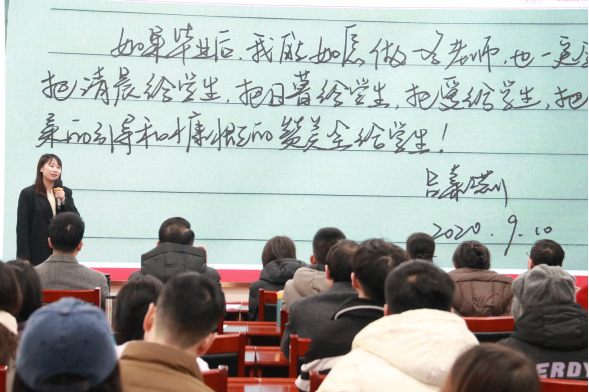 如果毕业后，我能如愿做一名老师，也一定
把清晨给学生，把日暮给学生，把爱给学生，把
柔的引导和慷慨的赞美全给学生！
2020.9.10
ERDY